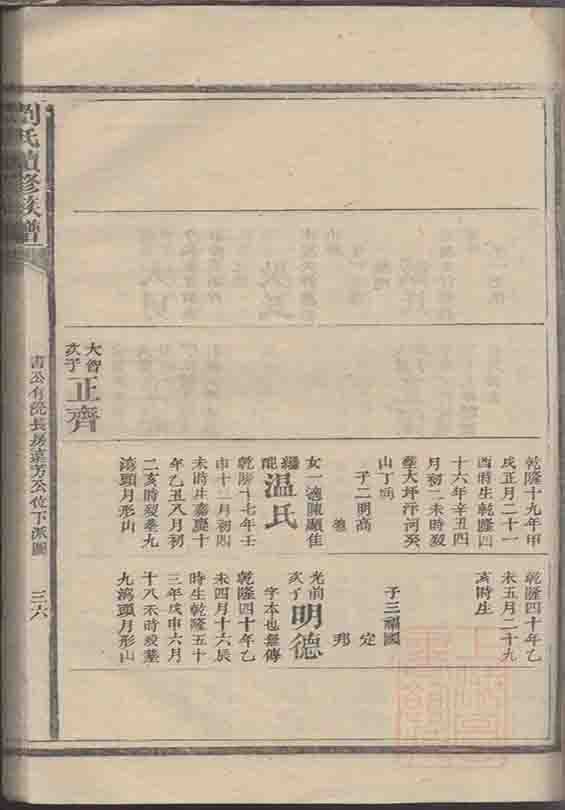 乾隆十九年甲
戌正月二十一
酉時生乾隆四
十六年辛丑四
月初二未時歿
葬大坪汙河癸
山丁向
子二明高
德
女一適陳顯佳
繼配
温氏
乾隆十七年壬
申十二月初四
未時生嘉慶十
年乙丑八月初
二亥時歿葬九
灣頭月形山
乾隆四十年乙
未五月二十九
亥時生
子三福國
定
邦
光前
次子
明德
字本也無傳
乾隆四十年乙
未四月十六辰
時生乾隆五十
三年戊申六月
十八未時歿葬
九灣頭月形山
大智
次子
正齊
劉氏續修族譜
書公行統長房遠芳公位下派圖
三六